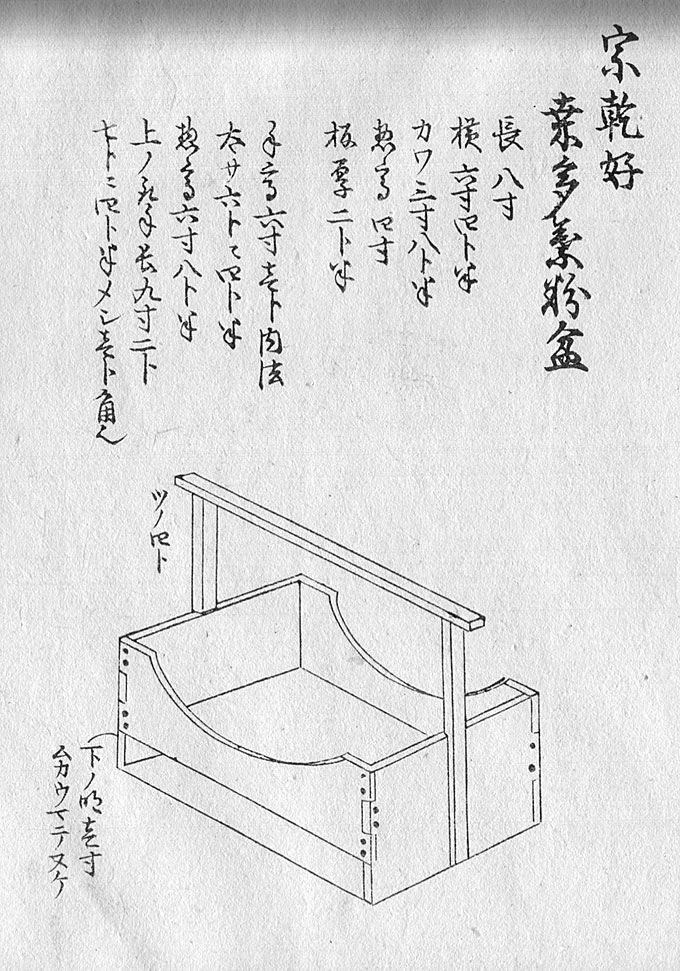 宗乾好
桒多葉粉盆
長八寸
横六寸四ト半
カワ三寸八ト半
惣高四寸
板厚二ト半
手高六寸壱ト内法
太サ六トニ四ト半
惣高六寸八ト半
上ノ手長九寸二ト
七トニ四ト半メン壱ト角ん
ツノ四ト
下ノ明壱寸
ムカウマテヌケ